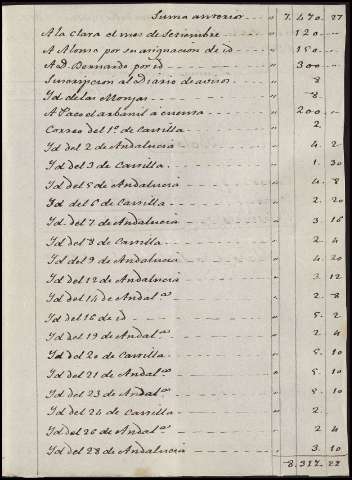 Suma anterior " 7.470.. 27
A la Clara el mes de Setiembre " 120..
A Alonso por su asignacion de id " 150..
A D. Bernardo por id " 300..
Suscripcion al Diario de avisos " 8
Yd de las Monjas " 8..
A Paco el arbañil á cuenta " 200..
Correo del 1º de Castilla " 2
Yd del 2 de Andalucia " 4.. 2
Yd del 3 de Castilla " 1.. 30
Yd del 5 de Andalucia " 4.. 8
Yd del 6 de Castilla " 2.. 20
Yd del 7 de Andalucia " 3.. 16
Yd del 8 de Castilla " 2.. 4
Yd del 9 de Andalucia " 4.. 20
Yd del 12 de Andalucia " 3.. 12
Yd del 14 de Andalas " 2.. 8
Yd del 16 de id " 5.. 2
Yd del 19 de Andalas " 2.. 4
Yd del 20 de Castilla " 5.. 10
Yd del 21 de Andalas " 5.. 10
Yd del 23 de Andalas " 5.. 10
Yd del 24 de Castilla " 2..
Yd del 26 de Andalas " 2.. 4
Yd del 28 de Andalucia " 3.. 10
8.317.. 22